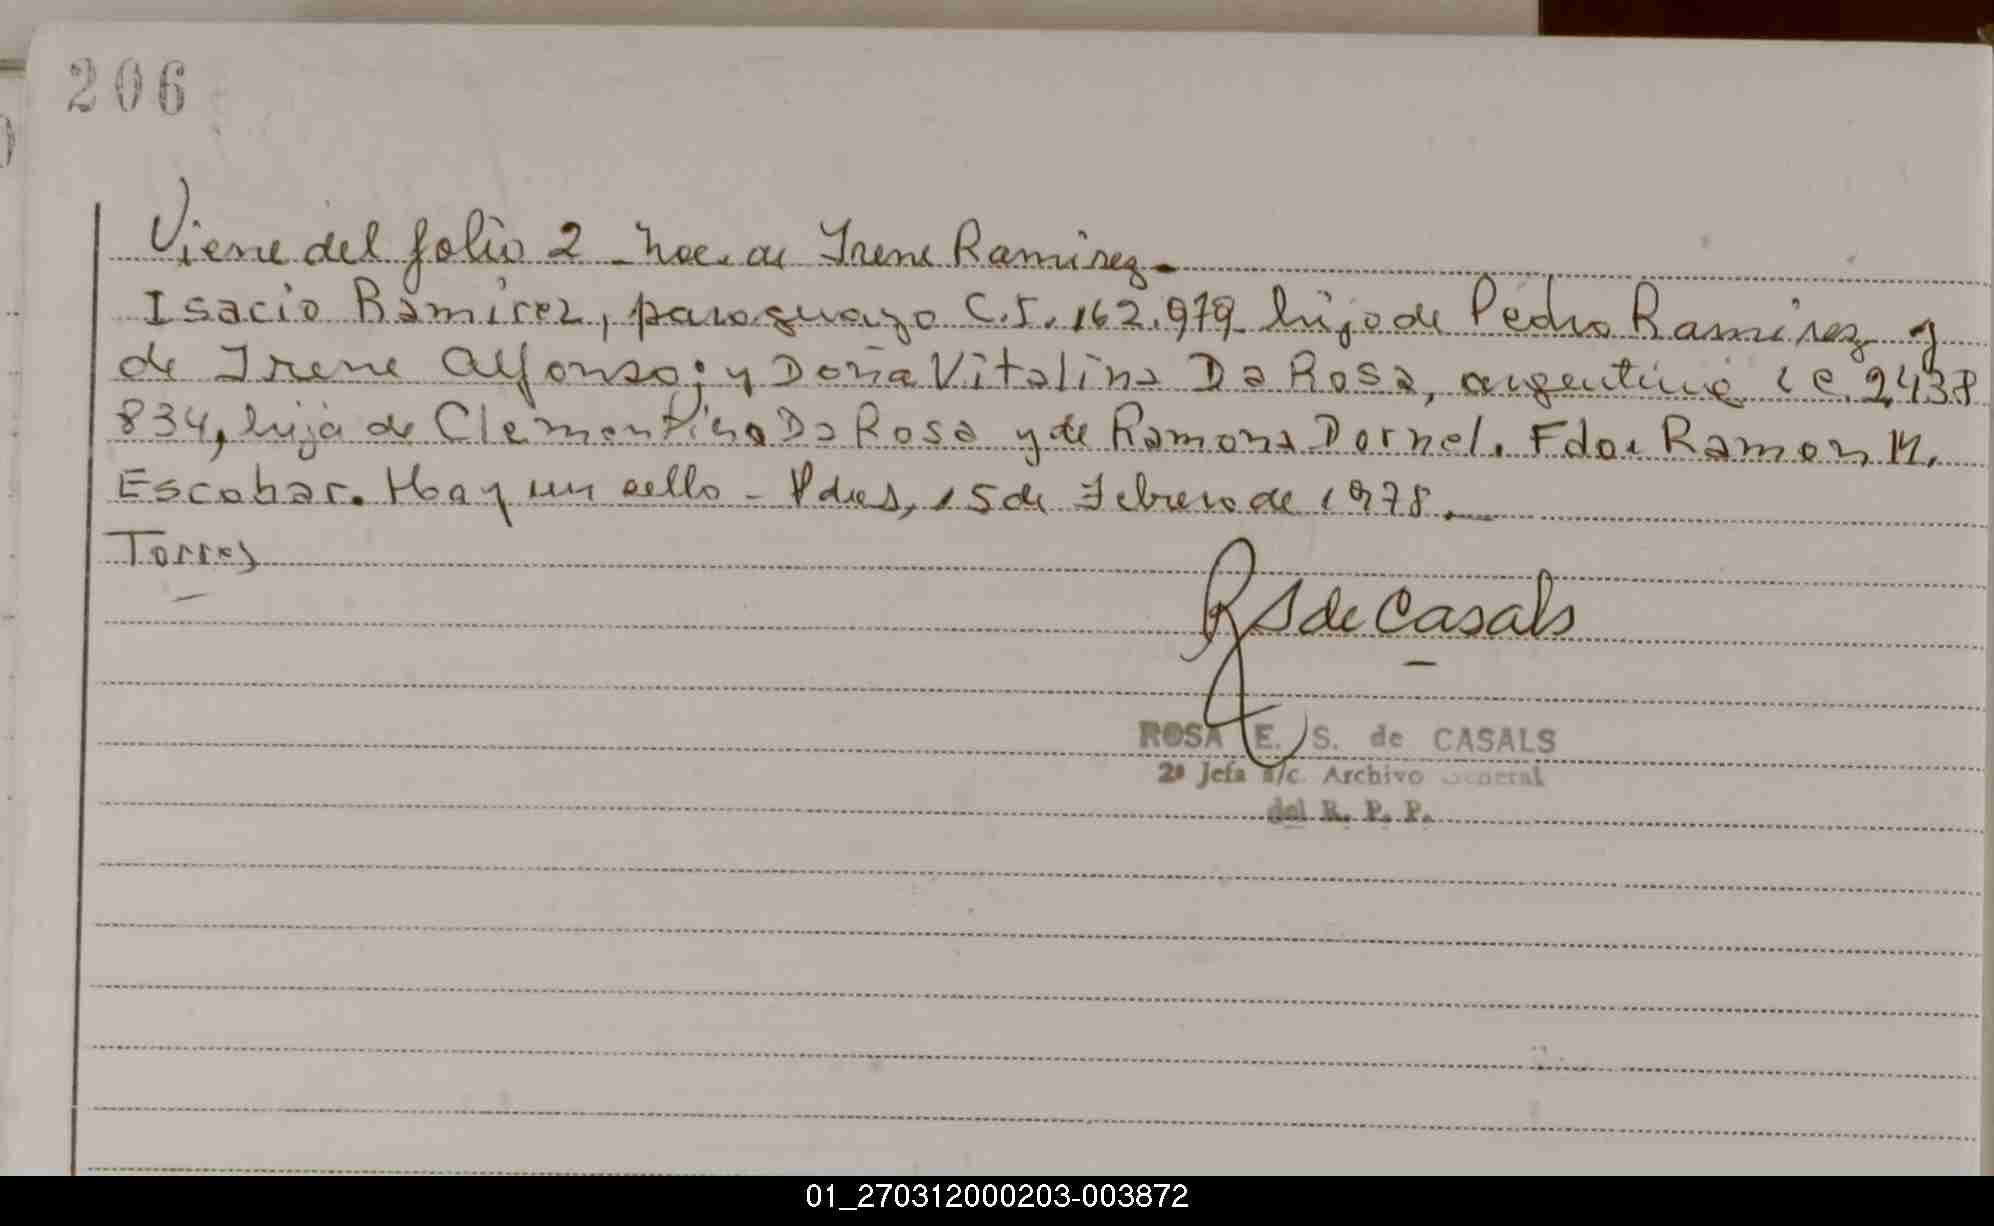 206
Viene del folio 2 - Nac. de Irene Ramirez.-
Isacio Ramirez, paraguayo C.I. 162.979 hijo de Pedro Ramirez y
de Irene Alfonso; y Doña Vitalina Da Rosa, argentina L C 2,438
834, hija de Clementino Da Rosa y de Ramona Dornel. Fdo: Ramon M.
Escobar. Hay un sello - Pdas, 15 de Febrero de 1978.
Torres
RS de Casals
ROSA E. S. de CASALS
2ª Jefa a/c. Archivo General
del R. P. P.
01_270312000203-003872